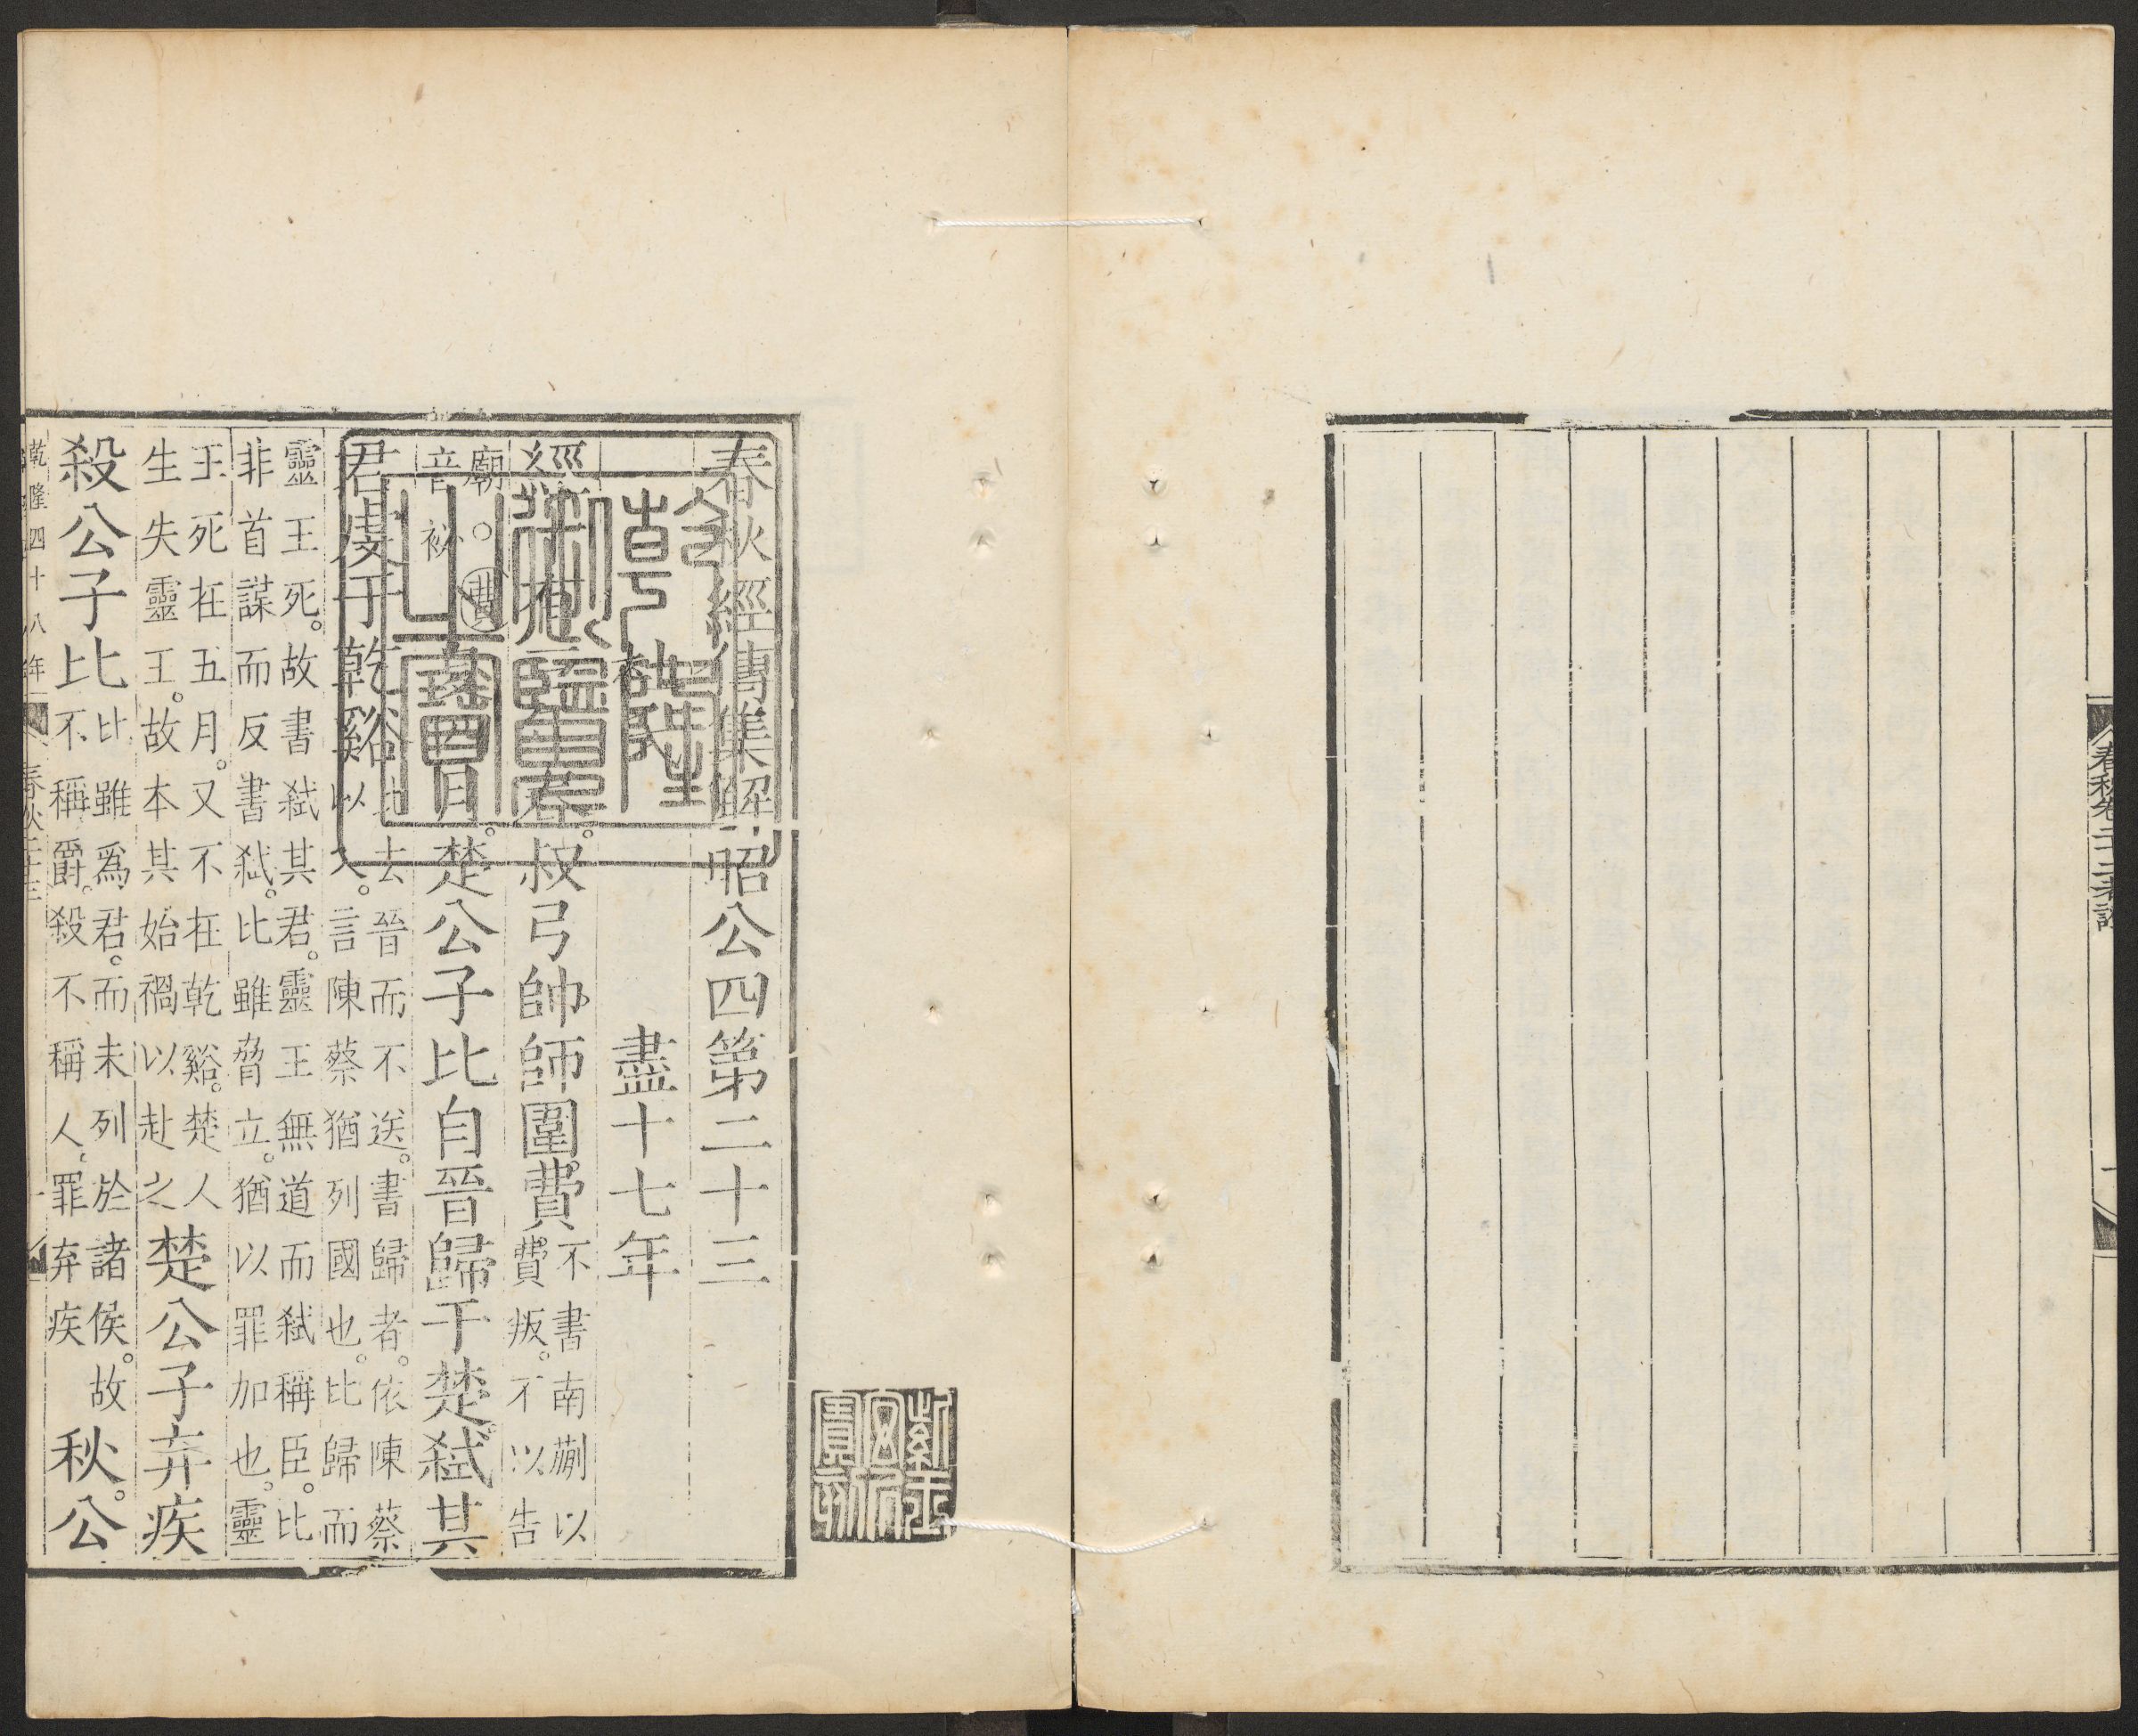 春秋卷二十二考證
春秋經傳集解昭公四第二十三
杜氏　盡十七年
經十有三年春。叔弓帥師圍費。
不書南蒯以
費叛。不以告
廟。費
音祕
夏四月。楚公子比自晉歸于楚。弒其
君虔于乾谿
比去晉而不送。書歸者。依陳蔡
以入。言陳蔡猶列國也。比歸而
靈王死。故書弒其君。靈王無道而弒稱臣。比
非首謀而反書弒。比雖脅立。猶以罪加也。靈
王死在五月。又不在乾谿。楚人
生失靈王。故本其始禍以赴之
楚公子弃疾
殺公子比
比雖爲君。而未列於諸侯。故
不稱爵。殺不稱人。罪弃疾
秋。公
乾隆四十八年
春秋卷二十三
一